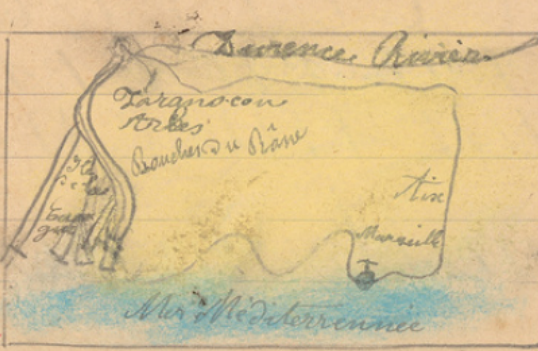 Durence Rivièr
Tarascon
Arles
Bouches du Rône
Aix
Marseille
Mer Méditerrennée